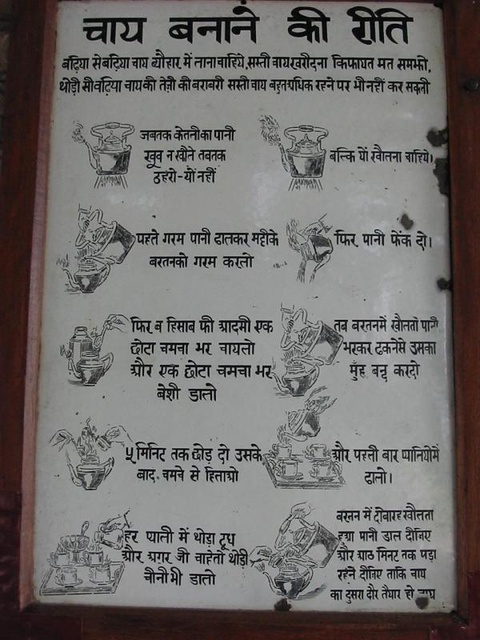 चाय बनाने की रीति
बढ़िया से बढ़िया चाय व्यौहार में लाना चाहिये, सस्ती चाय खरीदना किफायत मत समझो,
थोड़ी सी बढ़िया चाय की तेज़ी की बराबरी सस्ती चाय बहुत अधिक रहने पर भी नहीं कर सकती
जबतक केतली का पानी
खूब न खौले तबतक
ठहरो-यों नहीं
बल्कि यों खौलना चाहिये।
पहले गरम पानी ढालकर मट्टी के
बरतन को गरम करलो
फिर पानी फेंक दो।
फिर व हिसाब फी आदमी एक
छोटा चमचा भर चाय लो
और एक छोटा चमचा भर
बेशी डालो
तब बरतन में खौलता पानी
भरकर ढकने से उसका
मुँह बन्द करदो
५ मिनिट तक छोड़ दो उसके
बाद चमचे से हिलाओ
और पहली बार प्यालियों में
ढालो।
हर प्याली में थोड़ा दूध
और अगर जी चाहे तो थोड़ी
चीनी भी डालो
बरतन में दोबारह खौलता
हुआ पानी डाल दीजिए
और आठ मिनट तक पड़ा
रहने दीजिए ताकि चाय
का दुसरा दौर तैयार हो जाय